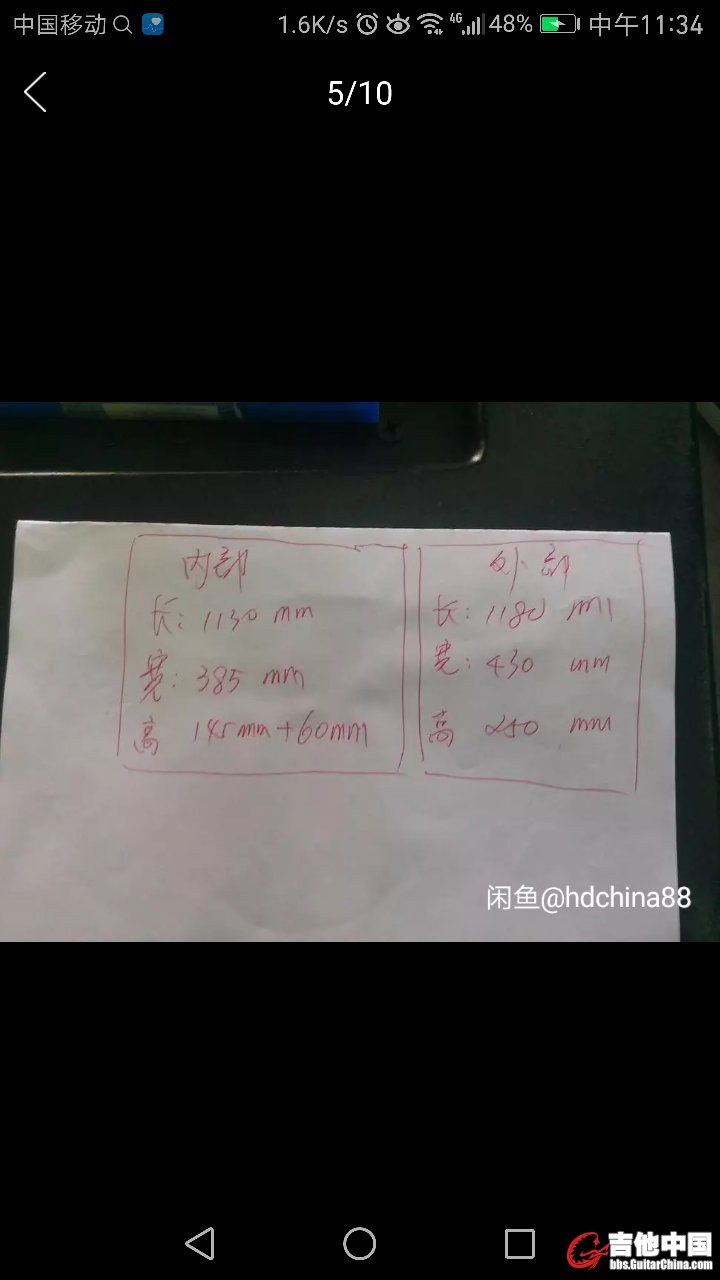 中国移动 1.6K/s 4G 48% 中午11:34
5/10
内部
长: 1130 mm
宽: 385 mm
高 145mm+60mm
外部
长: 1180 mm
宽: 430 mm
高 250 mm
闲鱼@hdchina88
吉他中国
bbs.GuitarChina.com